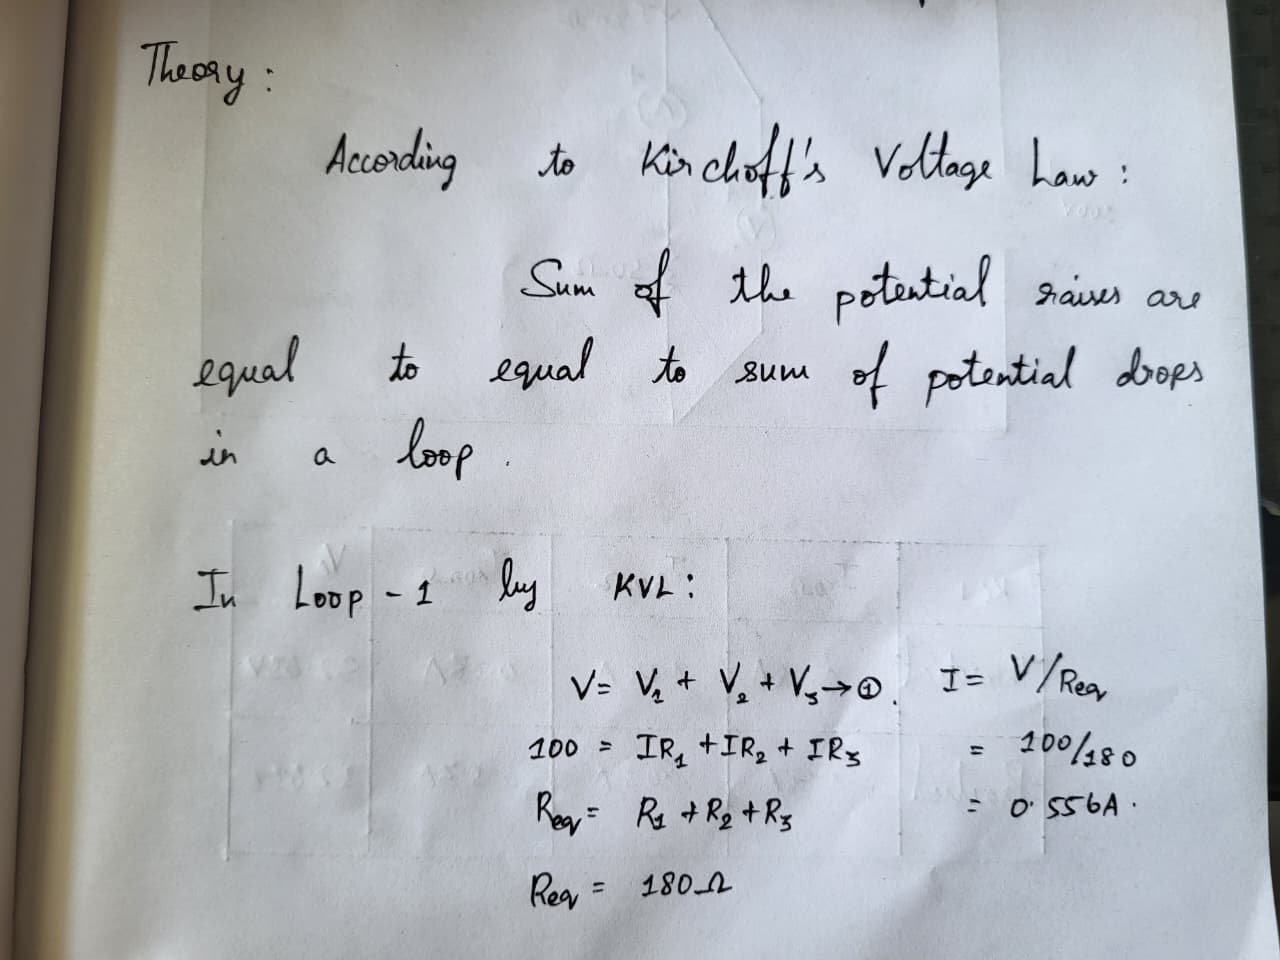 Theory :
According to Kirchoff's Voltage Law :
Sum of the potential raises are
equal to equal to sum of potential drops
in a loop .
In Loop - 1 by KVL :
V = V₁ + V₂ + V₃ → ① . I = V/Req
100 = IR₁ + IR₂ + IR₃ = 100/180
Req = R₁ + R₂ + R₃ = 0.556A .
Req = 180 Ω